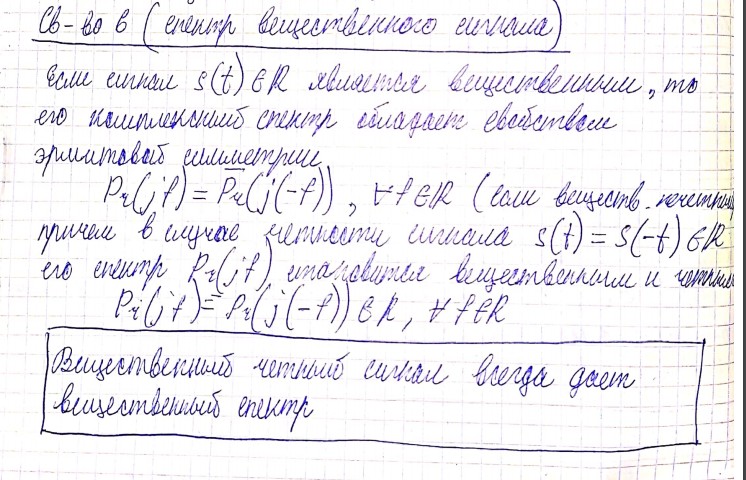 Св-во 6 (спектр вещественного сигнала)
Если сигнал s(t) ∈ ℝ является вещественным, то
его комплексный спектр обладает свойством
эрмитовой симметрии
P_r(jf) = P̅_r(j(-f)), ∀f∈ℝ (если веществ. нечетный
причем в случае четности сигнала s(t) = s(-t) ∈ ℝ
его спектр P_r(jf) становится вещественным и четным
P_r(jf) = P_r(j(-f)) ∈ ℝ, ∀f∈ℝ
Вещественный четный сигнал всегда дает
вещественный спектр